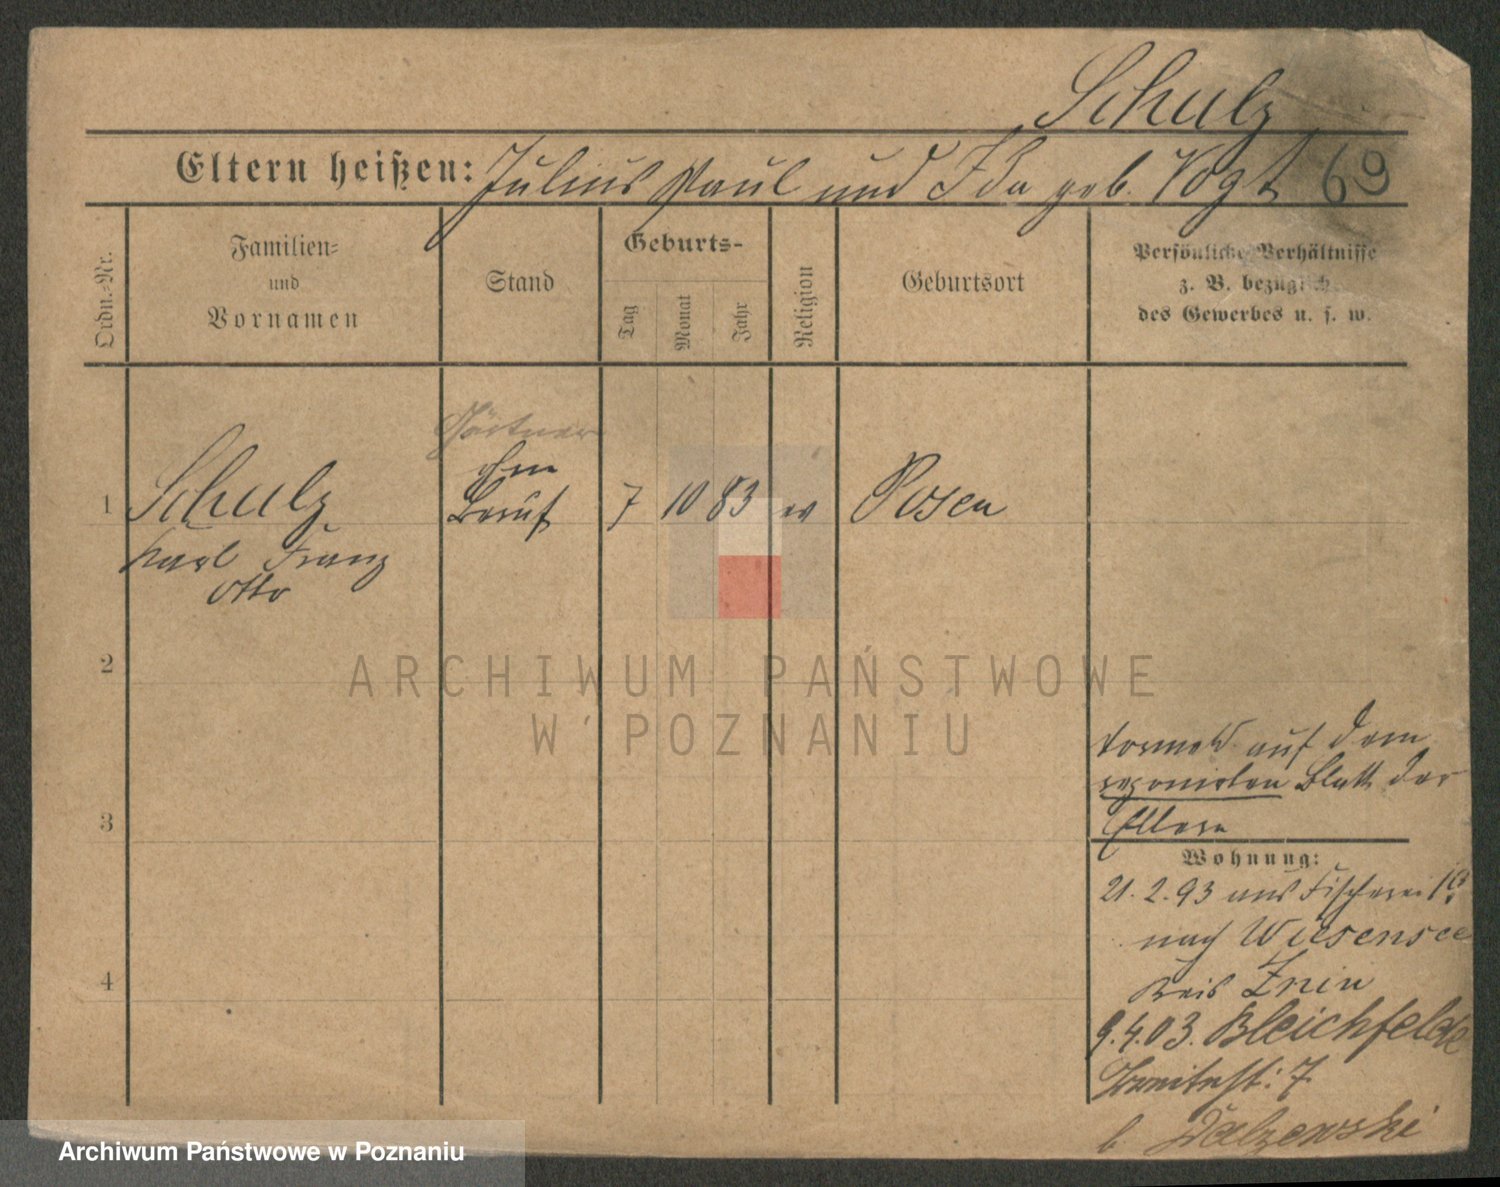 Schulz
Eltern heißen: Julius Paul und Ida geb. Vogt 69
Ordn.-Nr.
Familien-
und
Vornamen
Stand
Geburts-
Tag
Monat
Jahr
Religion
Geburtsort
Persönliche Verhältnisse
z. B. bezüglich
des Gewerbes u. s. w.
Gärtner
ohne
1 Schulz Beruf 7 10 83 ev Posen
Karl Franz
Otto
2
3
4
ARCHIWUM PAŃSTWOWE
W POZNANIU
auf dem
reponirten Blatt der
Eltern
Wohnung:
21.2.93 aus Fischerei
nach Wiesensee
Kreis Znin
9.4.03. Bleichfelde
Breitestr: 7.
b.
Archiwum Państwowe w Poznaniu